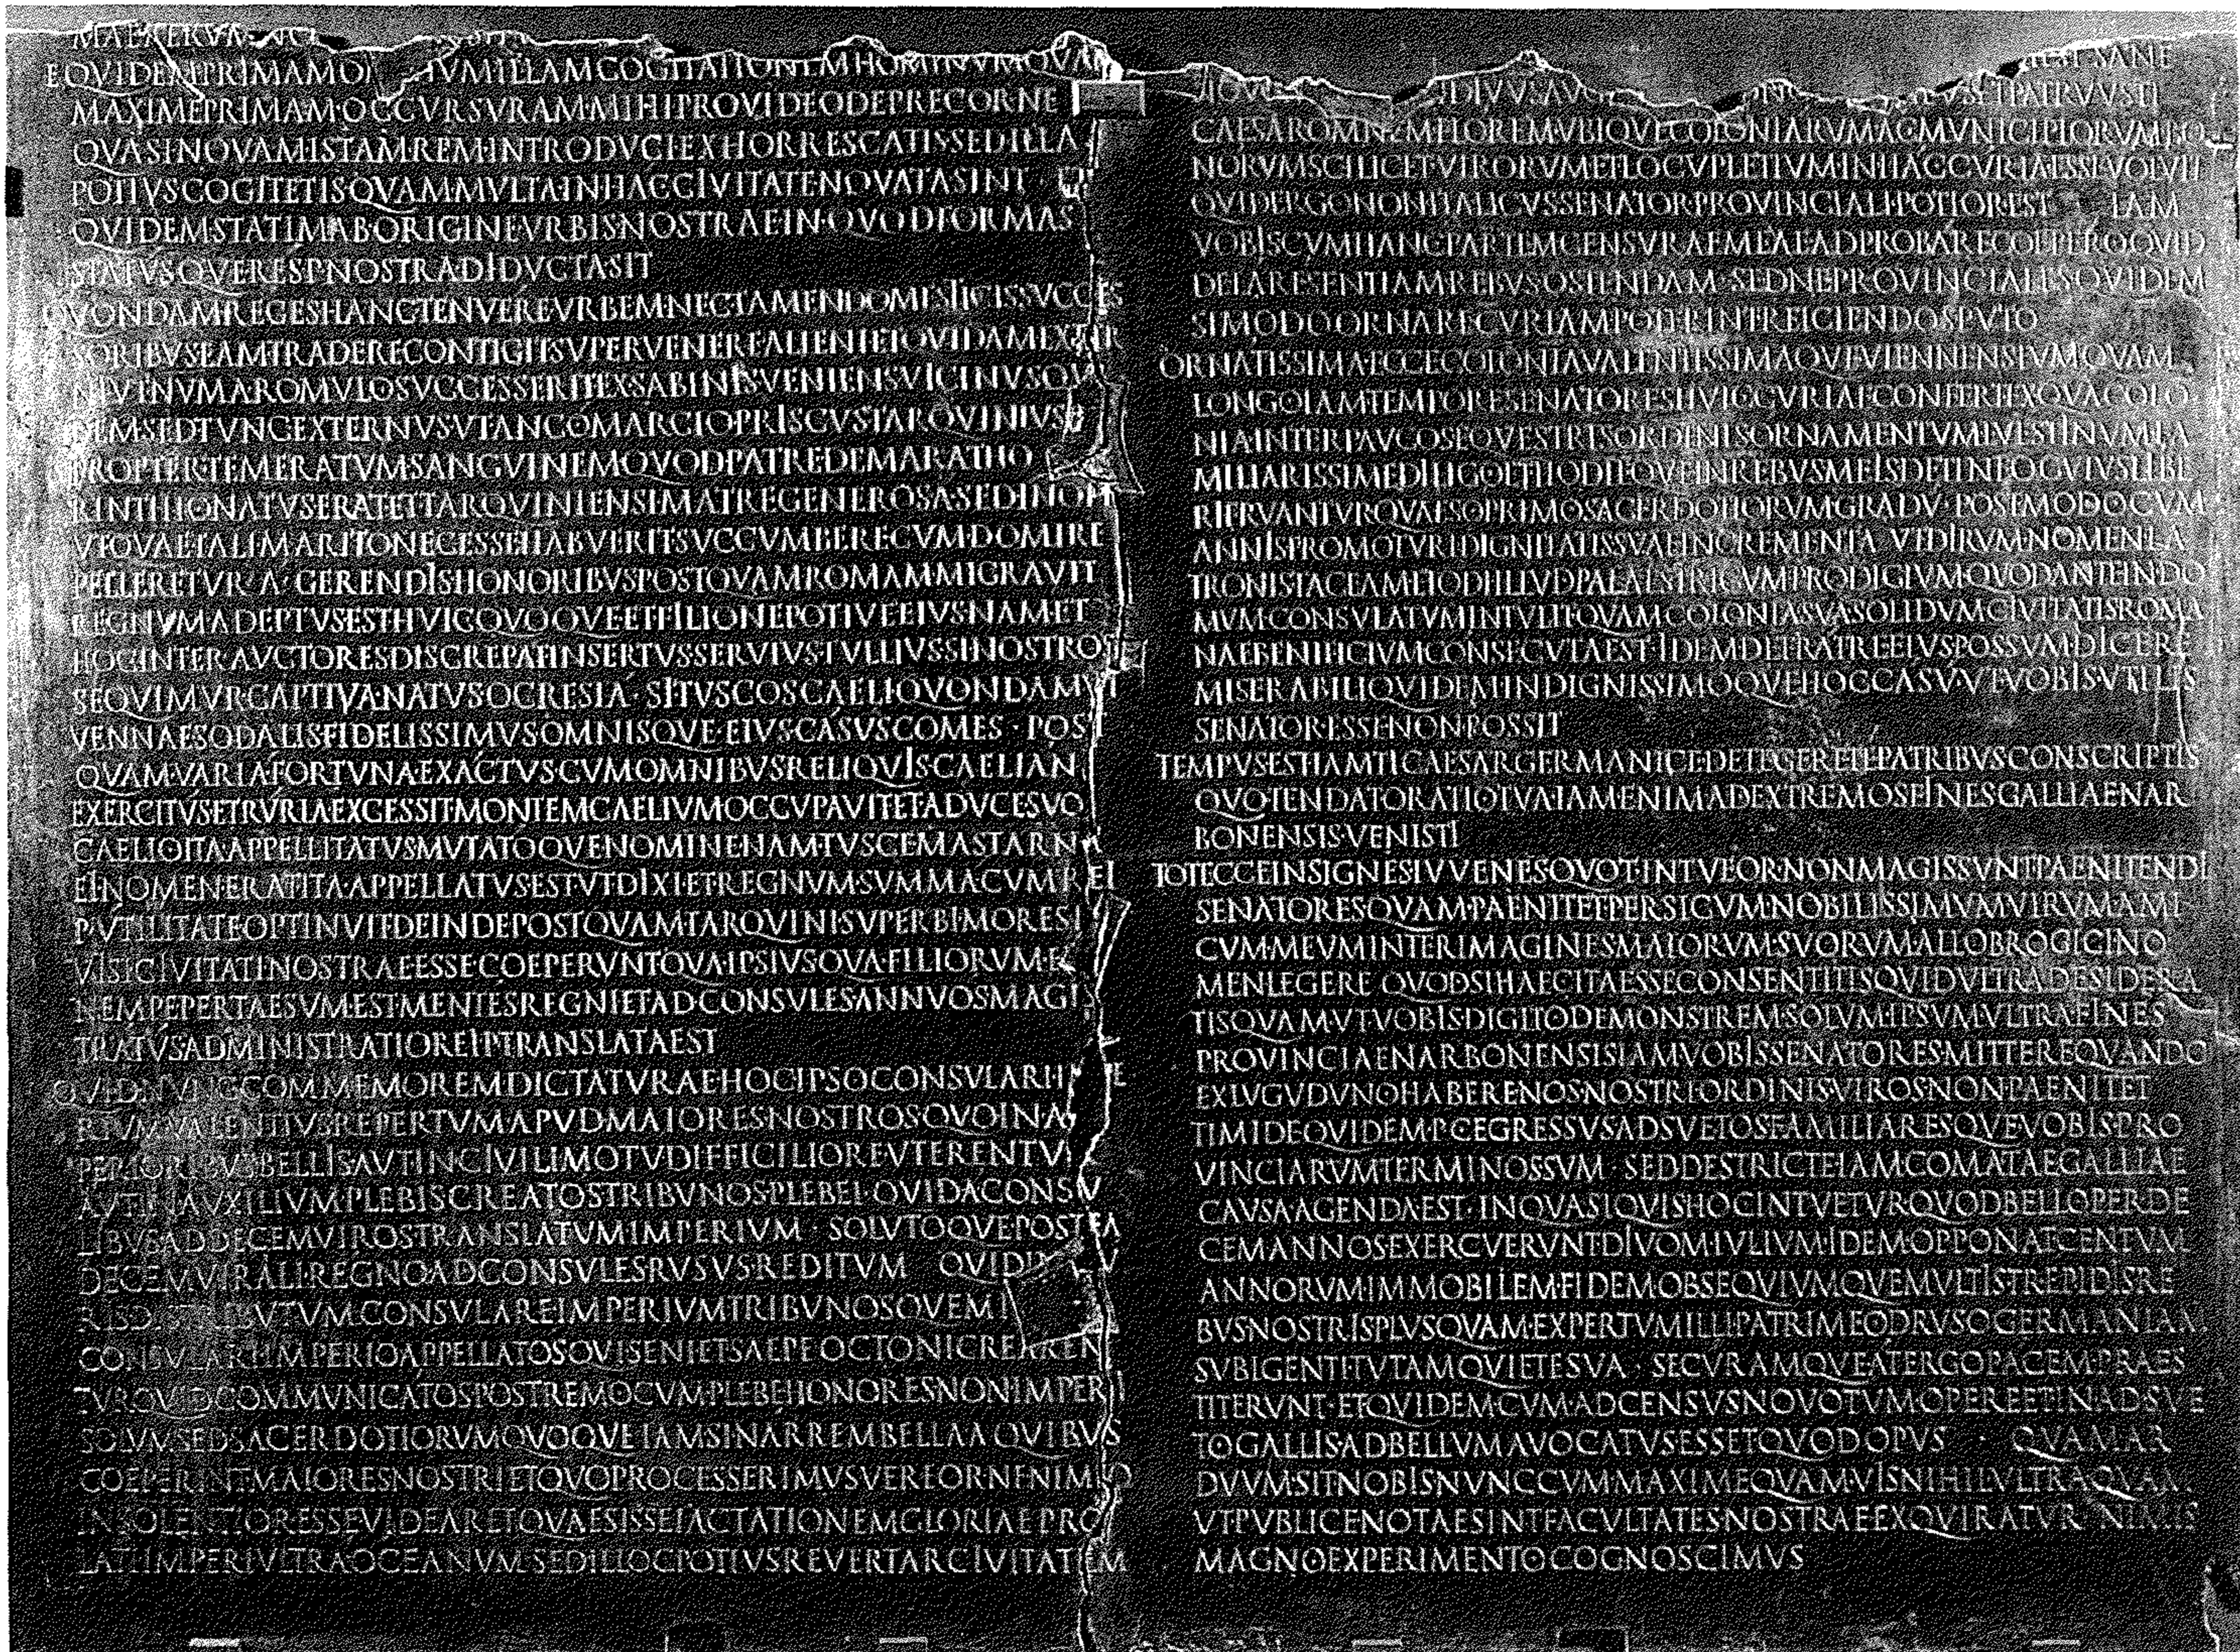 EQVIDEM PRIMAM OMNIVM ILLAM COGITATIONEM HOMINVM QVAM
MAXIME PRIMAM OCCVRSVRAM MIHI PROVIDEO DEPRECOR NE
QVASI NOVAM ISTAM REM INTRODVCI EXHORRESCATIS SED ILLA
POTIVS COGITETIS QVAM MVLTA IN HAC CIVITATE NOVATA SINT ET
QVIDEM STATIM AB ORIGINE VRBIS NOSTRAE IN QVOD FORMAS
STATVSQVE RES P NOSTRA DIDVCTA SIT
QVONDAM REGES HANC TENVERE VRBEM NEC TAMEN DOMESTICIS SVCCES
SORIBVS EAM TRADERE CONTIGIT SVPERVENERE ALIENI ET QVIDAM EXTER
NI VT NVMA ROMVLO SVCCESSERIT EX SABINIS VENIENS VICINVS QVI
DEM SED TVNC EXTERNVS VT ANCO MARCIO PRISCVS TARQVINIVS
PROPTER TEMERATVM SANGVINEM QVOD PATRE DEMARATHO
RINTHIO NATVS ERAT ET TARQVINIENSI MATRE GENEROSA SED INOPI
VT QVAE TALI MARITO NECESSE HABVERIT SVCCVMBERE CVM DOMI RE
PELLERETVR A GERENDIS HONORIBVS POSTQVAM ROMAM MIGRAVIT
REGNVM ADEPTVS EST HVIC QVOQVE ET FILIO NEPOTIVE EIVS NAM ET
HOC INTER AVCTORES DISCREPAT INSERTVS SERVIVS TVLLIVS SI NOSTROS
SEQVIMVR CAPTIVA NATVS OCRESIA SI TVSCOS CAELI QVONDAM VI
VENNAE SODALIS FIDELISSIMVS OMNISQVE EIVS CASVS COMES POST
QVAM VARIA FORTVNA EXACTVS CVM OMNIBVS RELIQVIS CAELIANI
EXERCITVS ETRVRIA EXCESSIT MONTEM CAELIVM OCCVPAVIT ET A DVCE SVO
CAELIO ITA APPELLITATVS MVTATOQVE NOMINE NAM TVSCE MASTARNA
EI NOMEN ERAT ITA APPELLATVS EST VT DIXI ET REGNVM SVMMA CVM REI
P VTILITATE OPTINVIT DEINDE POSTQVAM TARQVINI SVPERBI MORES I
VISI CIVITATI NOSTRAE ESSE COEPERVNT QVA IPSIVS QVA FILIORVM E
NEMPE PERTAESVM EST MENTES REGNI ET AD CONSVLES ANNVOS MAGIS
TRATVS ADMINISTRATIO REI P TRANSLATA EST
QVID NVNC COMMEMOREM DICTATVRAE HOC IPSO CONSVLARI IMPE
RIVM VALENTIVS REPERTVM APVD MAIORES NOSTROS QVO IN A
PERIORIBVS BELLIS AVT IN CIVILI MOTV DIFFICILIORE VTERENTVR
AVT IN AVXILIVM PLEBIS CREATOS TRIBVNOS PLEBEI QVID A CONSV
LIBVS AD DECEMVIROS TRANSLATVM IMPERIVM SOLVTOQVE POSTEA
DECEMVIRALI REGNO AD CONSVLES RVSVS REDITVM QVID IN V
RIS DISTRIBVTVM CONSVLARE IMPERIVM TRIBVNOSQVE MI
CONSVLARI IMPERIO APPELLATOS QVI SENI ET SAEPE OCTONI CREAREN
TVR QVID COMMVNICATOS POSTREMO CVM PLEBE HONORES NON IMPERI
SOLVM SED SACERDOTIORVM QVOQVE IAM SI NARREM BELLA A QVIBVS
COEPERINT MAIORES NOSTRI ET QVO PROCESSERIMVS VEREOR NE NIMIO
INSOLENTIOR ESSE VIDEAR ET QVAESISSE IACTATIONEM GLORIAE PRO
LATI IMPERI VLTRA OCEANVM SED ILLOC POTIVS REVERTAR CIVITATEM
SANE
NOVO DIVVS AVG PATRVVS TI
CAESAR OMNEM FLOREM VBIQVE COLONIARVM AC MVNICIPIORVM BO
NORVM SCILICET VIRORVM ET LOCVPLETIVM IN HAC CVRIA ESSE VOLVIT
QVID ERGO NON ITALICVS SENATOR PROVINCIALI POTIOR EST IAM
VOBIS CVM HANC PARTEM CENSVRAE MEAE ADPROBARE COEPERO QVID
DE EA RE SENTIAM REBVS OSTENDAM SED NE PROVINCIALES QVIDEM
SI MODO ORNARE CVRIAM POTERINT REICIENDOS PVTO
ORNATISSIMA ECCE COLONIA VALENTISSIMAQVE VIENNENSIVM QVAM
LONGO IAM TEMPORE SENATORES HVIC CVRIAE CONFERT EX QVA COLO
NIA INTER PAVCOS EQVESTRIS ORDINIS ORNAMENTVM L VESTINVM FA
MILIARISSIME DILIGO ET HODIEQVE IN REBVS MEIS DETINEO CVIVS LIBE
RI FRVANTVR QVAESO PRIMO SACERDOTIORVM GRADV POST MODO CVM
ANNIS PROMOTVRI DIGNITATIS SVAE INCREMENTA VT DIRVM NOMEN LA
TRONIS TACEAM ET ODI ILLVD PALAESTRICVM PRODIGIVM QVOD ANTE IN DO
MVM CONSVLATVM INTVLIT QVAM COLONIA SVA SOLIDVM CIVITATIS ROMA
NAE BENIFICIVM CONSECVTA EST IDEM DE FRATRE EIVS POSSVM DICERE
MISERABILI QVIDEM INDIGNISSIMOQVE HOC CASV VT VOBIS VTILIS
SENATOR ESSE NON POSSIT
TEMPVS EST IAM TI CAESAR GERMANICE DETEGERE TE PATRIBVS CONSCRIPTIS
QVO TENDAT ORATIO TVA IAM ENIM AD EXTREMOS FINES GALLIAE NAR
BONENSIS VENISTI
TOT ECCE INSIGNES IVVENES QVOT INTVEOR NON MAGIS SVNT PAENITENDI
SENATORES QVAM PAENITET PERSICVM NOBILISSIMVM VIRVM AMI
CVM MEVM INTER IMAGINES MAIORVM SVORVM ALLOBROGICI NO
MEN LEGERE QVOD SI HAEC ITA ESSE CONSENTITIS QVID VLTRA DESIDERA
TIS QVAM VT VOBIS DIGITO DEMONSTREM SOLVM IPSVM VLTRA FINES
PROVINCIAE NARBONENSIS IAM VOBIS SENATORES MITTERE QVANDO
EX LVGVDVNO HABERE NOS NOSTRI ORDINIS VIROS NON PAENITET
TIMIDE QVIDEM P C EGRESSVS ADSVETOS FAMILIARESQVE VOBIS PRO
VINCIARVM TERMINOS SVM SED DESTRICTE IAM COMATAE GALLIAE
CAVSA AGENDA EST IN QVA SI QVIS HOC INTVETVR QVOD BELLO PER DE
CEM ANNOS EXERCVERVNT DIVOM IVLIVM IDEM OPPONAT CENTVM
ANNORVM IMMOBILEM FIDEM OBSEQVIVMQVE MVLTIS TREPIDIS RE
BVS NOSTRIS PLVS QVAM EXPERTVM ILLI PATRI MEO DRVSO GERMANIAM
SVBIGENTI TVTAM QVIETE SVA SECVRAMQVE A TERGO PACEM PRAES
TITERVNT ET QVIDEM CVM AD CENSVS NOVO TVM OPERE ET INADSVE
TO GALLIS AD BELLVM AVOCATVS ESSET QVOD OPVS QVAM AR
DVVM SIT NOBIS NVNC CVM MAXIME QVAMVIS NIHIL VLTRA QVAM
VT PVBLICE NOTAE SINT FACVLTATES NOSTRAE EXQVIRATVR NIMIS
MAGNO EXPERIMENTO COGNOSCIMVS